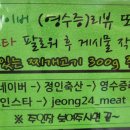 이버 (영수증)리뷰 또
타 팔로워 후 게시물 작
있는 찌개고기 300g
네이버 → 정인축산 → 영수증
인스타 → jeong24_meat
※ 주문전 보여주시면 끝~